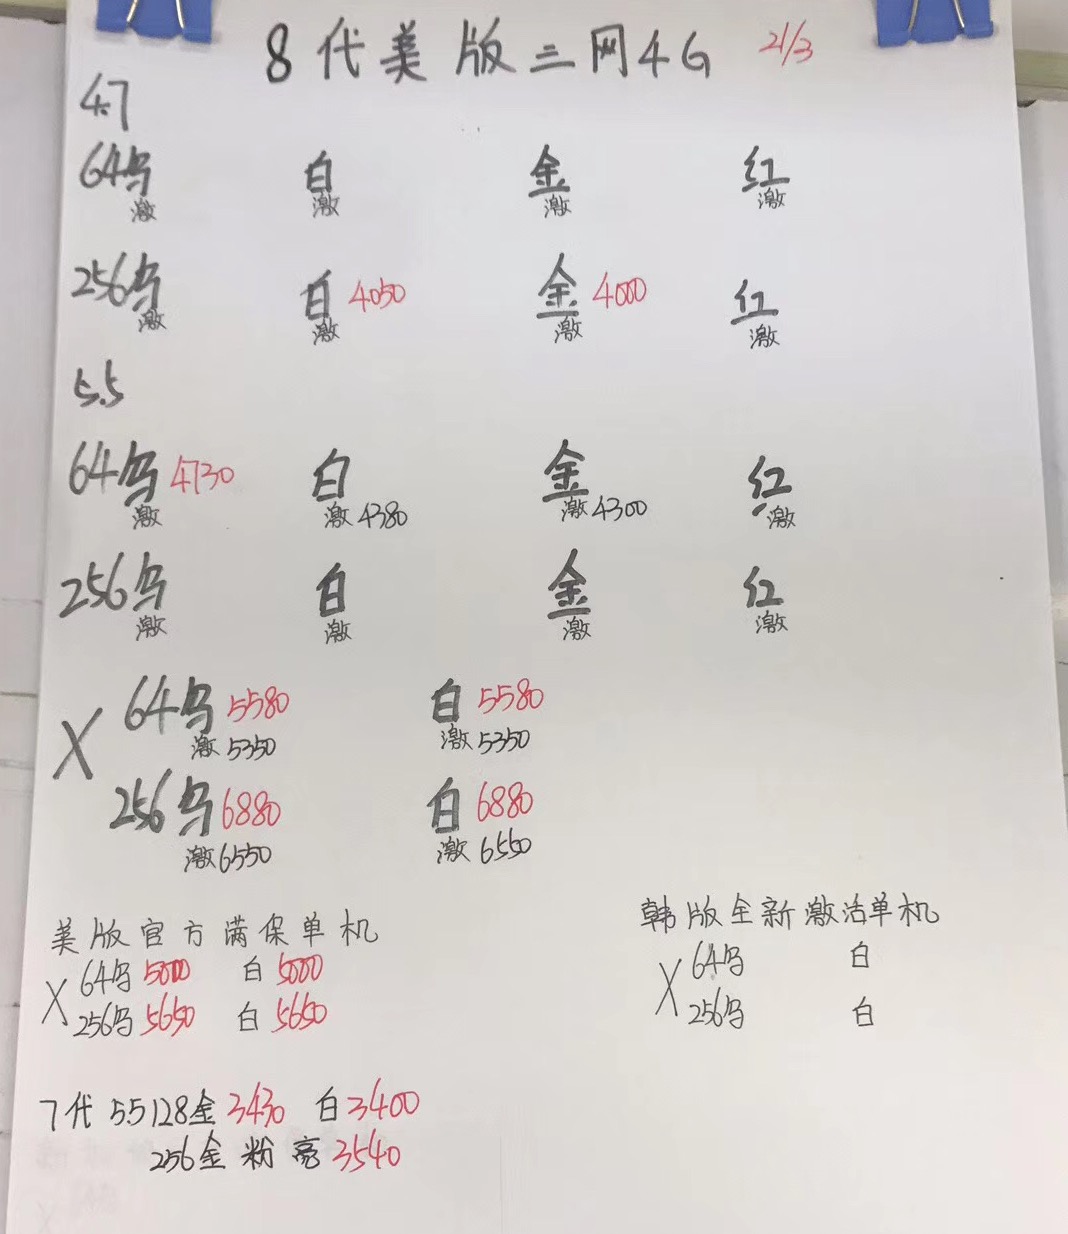 8代美版三网4G 21/3
4.7
64乌 白 金 红
激 激 激 激
256乌 白 4050 金 4000 红
激 激 激 激
5.5
64乌 4730 白 金 红
激 激 4380 激 4300 激
256乌 白 金 红
激 激 激 激
X 64乌 5580 白 5580
激 5350 激 5350
256乌 6880 白 6880
激 6550 激 6550
美版官方满保单机
X 64乌 5000 白 5000
256乌 5650 白 5650
韩版全新激活单机
X 64乌 白
256乌 白
7代 5.5 128金 3430 白 3400
256金 粉 亮 3540